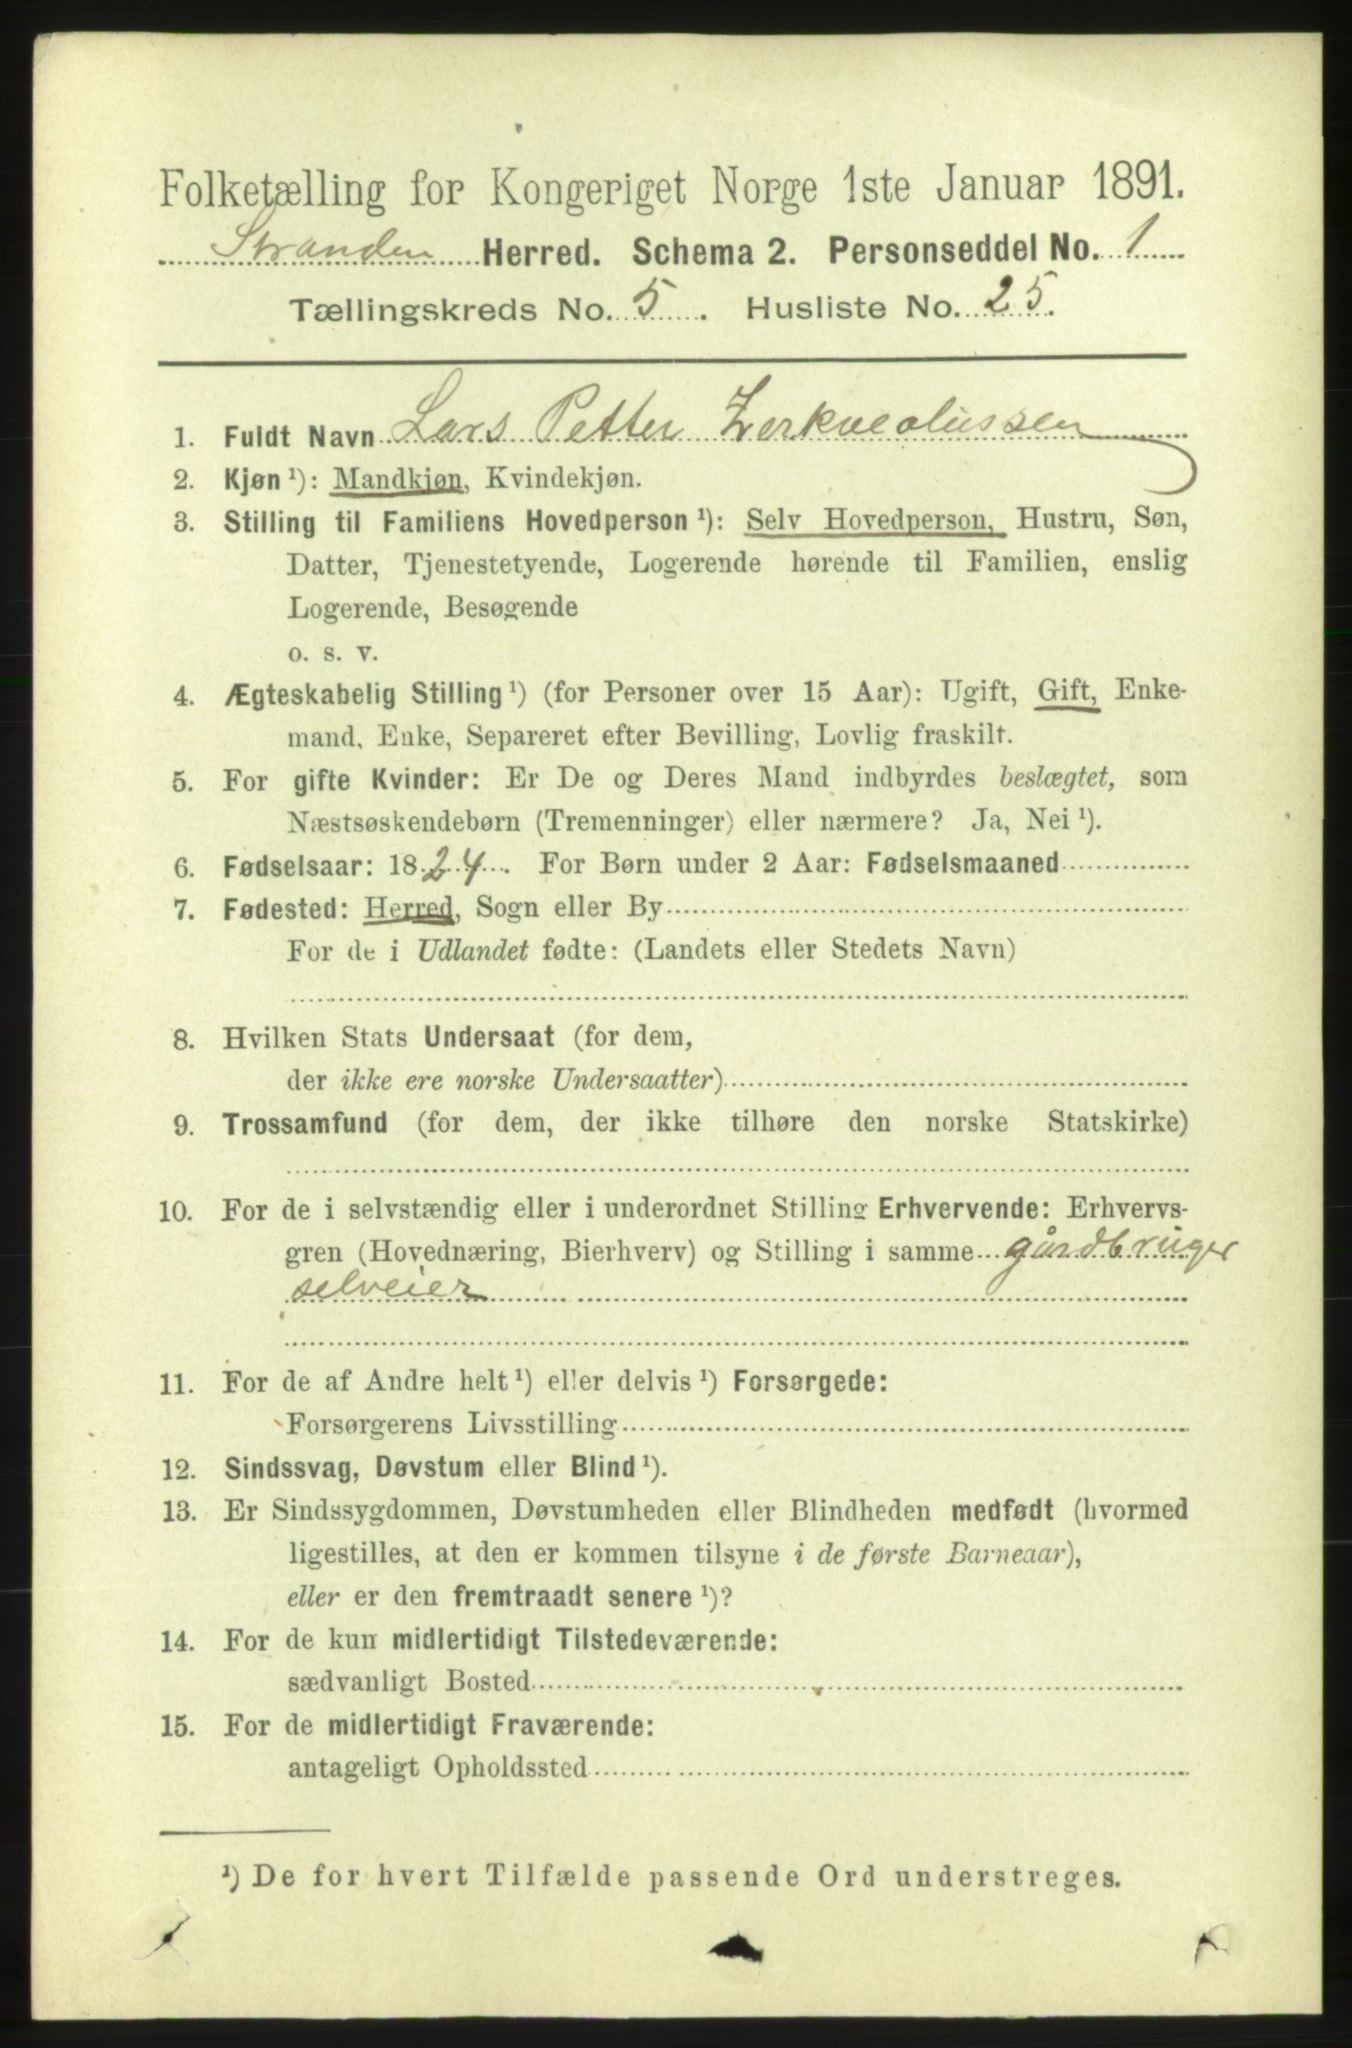 Folketælling for Kongeriget Norge 1ste Januar 1891.
Stranden Herred. Schema 2. Personseddel No. 1
Tællingskreds No. 5. Husliste No. 25.
1. Fuldt Navn Lars Petter Zerkveolussen
2. Kjøn ¹): Mandkjøn, Kvindekjøn.
3. Stilling til Familiens Hovedperson ¹): Selv Hovedperson, Hustru, Søn,
Datter, Tjenestetyende, Logerende hørende til Familien, enslig
Logerende, Besøgende
o. s. v.
4. Ægteskabelig Stilling ¹) (for Personer over 15 Aar): Ugift, Gift, Enke-
mand, Enke, Separeret efter Bevilling, Lovlig fraskilt.
5. For gifte Kvinder: Er De og Deres Mand indbyrdes beslægtet, som
Næstsøskendebørn (Tremenninger) eller nærmere? Ja, Nei ¹).
6. Fødselsaar: 1824. For Børn under 2 Aar: Fødselsmaaned
7. Fødested: Herred, Sogn eller By
For de i Udlandet fødte: (Landets eller Stedets Navn)
8. Hvilken Stats Undersaat (for dem,
der ikke ere norske Undersaatter)
9. Trossamfund (for dem, der ikke tilhøre den norske Statskirke)
10. For de i selvstændig eller i underordnet Stilling Erhvervende: Erhvervs-
gren (Hovednæring, Bierhverv) og Stilling i samme gårdbruger
selveier
11. For de af Andre helt ¹) eller delvis ¹) Forsørgede:
Forsørgerens Livsstilling
12. Sindssvag, Døvstum eller Blind ¹).
13. Er Sindssygdommen, Døvstumheden eller Blindheden medfødt (hvormed
ligestilles, at den er kommen tilsyne i de første Barneaar),
eller er den fremtraadt senere ¹)?
14. For de kun midlertidigt Tilstedeværende:
sædvanligt Bosted
15. For de midlertidigt Fraværende:
antageligt Opholdssted
¹) De for hvert Tilfælde passende Ord understreges.